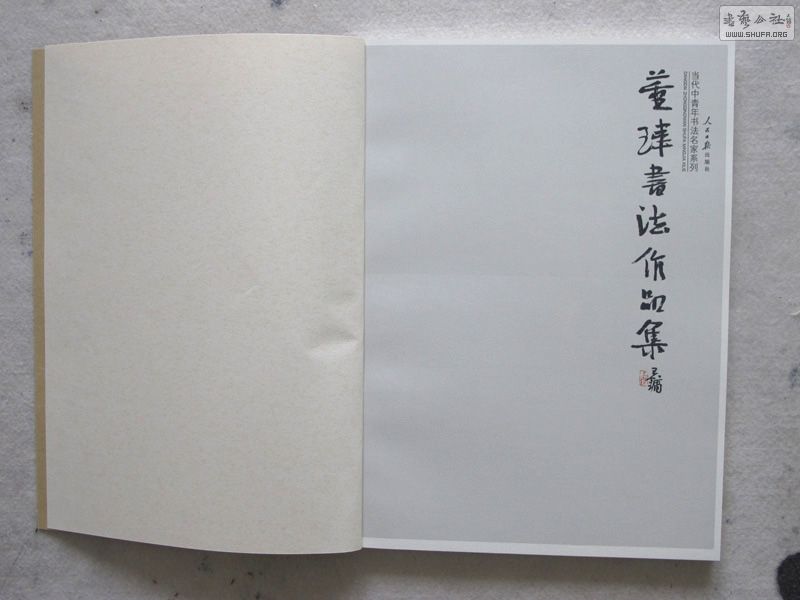 書藝公社
WWW.SHUFA.ORG
人民日报出版社
当代中青年书法名家系列
DANGDAI ZHONGQINGNIAN SHUFA MINGJIA XILIE
董玮書法作品集
王镛